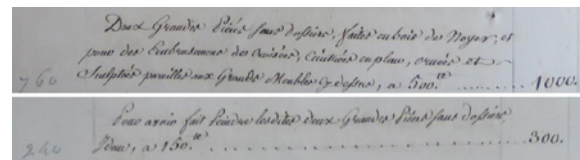 Deux Grandes Pièces sans dossier, faites en bois de Noyer, et
pour des Embrasures de Croisées, Cintrées en plan, ornées et
760 Sculptées pareilles aux Grands Meubles cy dessus, a 500.ᵗᵗ ........ 1000.
Pour avoir fait Peindre lesdites deux Grandes Pièces sans dossier,
240 Idem, a 150.ᵗᵗ ........ 300.